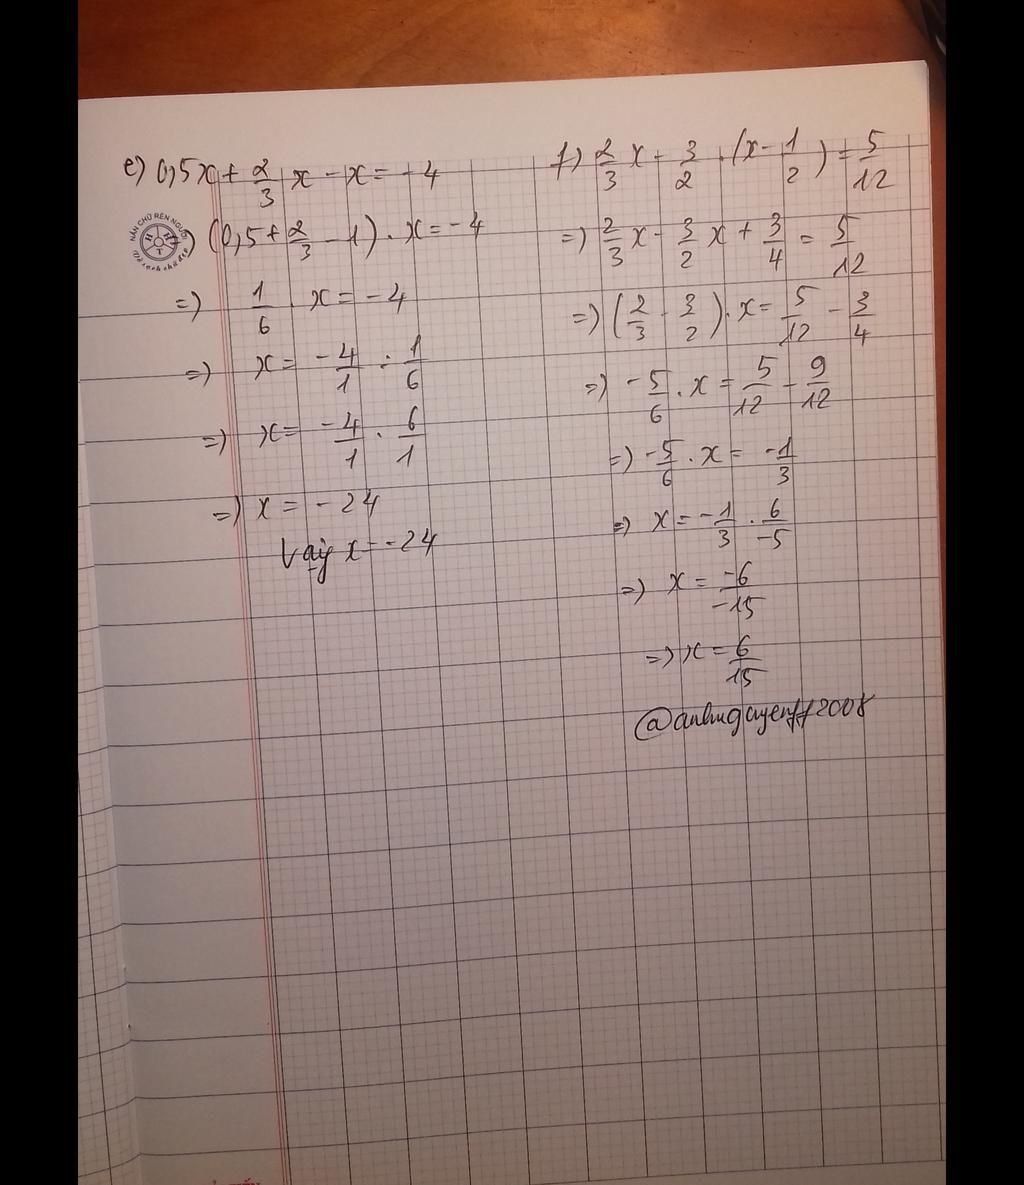 e) 0,5x + 2/3 x - x = -4
(0,5 + 2/3 - 1) . x = -4
=) 1/6 . x = -4
=) x = -4/1 : 1/6
=) x = -4/1 . 6/1
=) x = -24
Vậy x = -24
f) 2/3 x - 3/2 . (x - 1/2) = 5/12
=) 2/3 x - 3/2 x + 3/4 = 5/12
=) (2/3 - 3/2) . x = 5/12 - 3/4
=) -5/6 . x = 5/12 - 9/12
=) -5/6 . x = -1/3
=) x = -1/3 . 6/-5
=) x = -6/-15
=) x = 6/15
NẮN CHỮ RÈN NGƯỜI